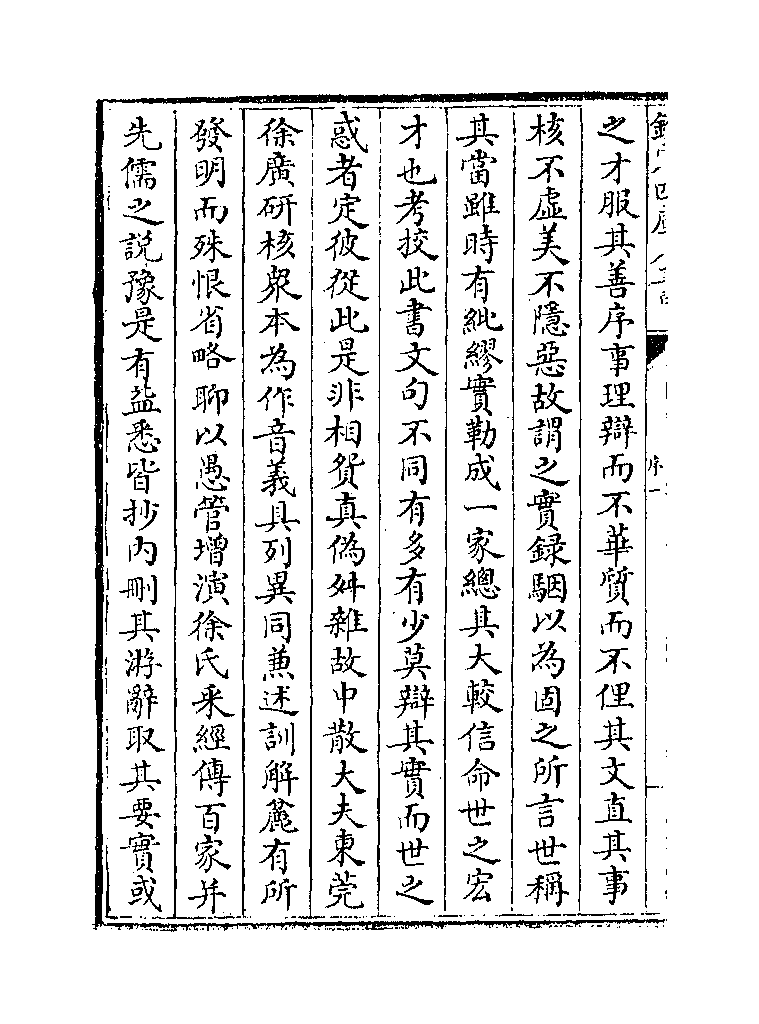 之才服其善序事理辯而不華質而不俚其文直其事
核不虛美不隱惡故謂之實録駰以為固之所言世稱
其當雖時有紕繆實勒成一家總其大較信命世之宏
才也考挍此書文句不同有多有少莫辯其實而世之
惑者定彼從此是非相貿真偽舛雜故中散大夫東莞
徐廣研核衆本為作音義具列異同兼述訓解麄有所
發明而殊恨省略聊以愚管増演徐氏采經傳百家并
先儒之説豫是有益悉皆抄内刪其游辭取其要實或